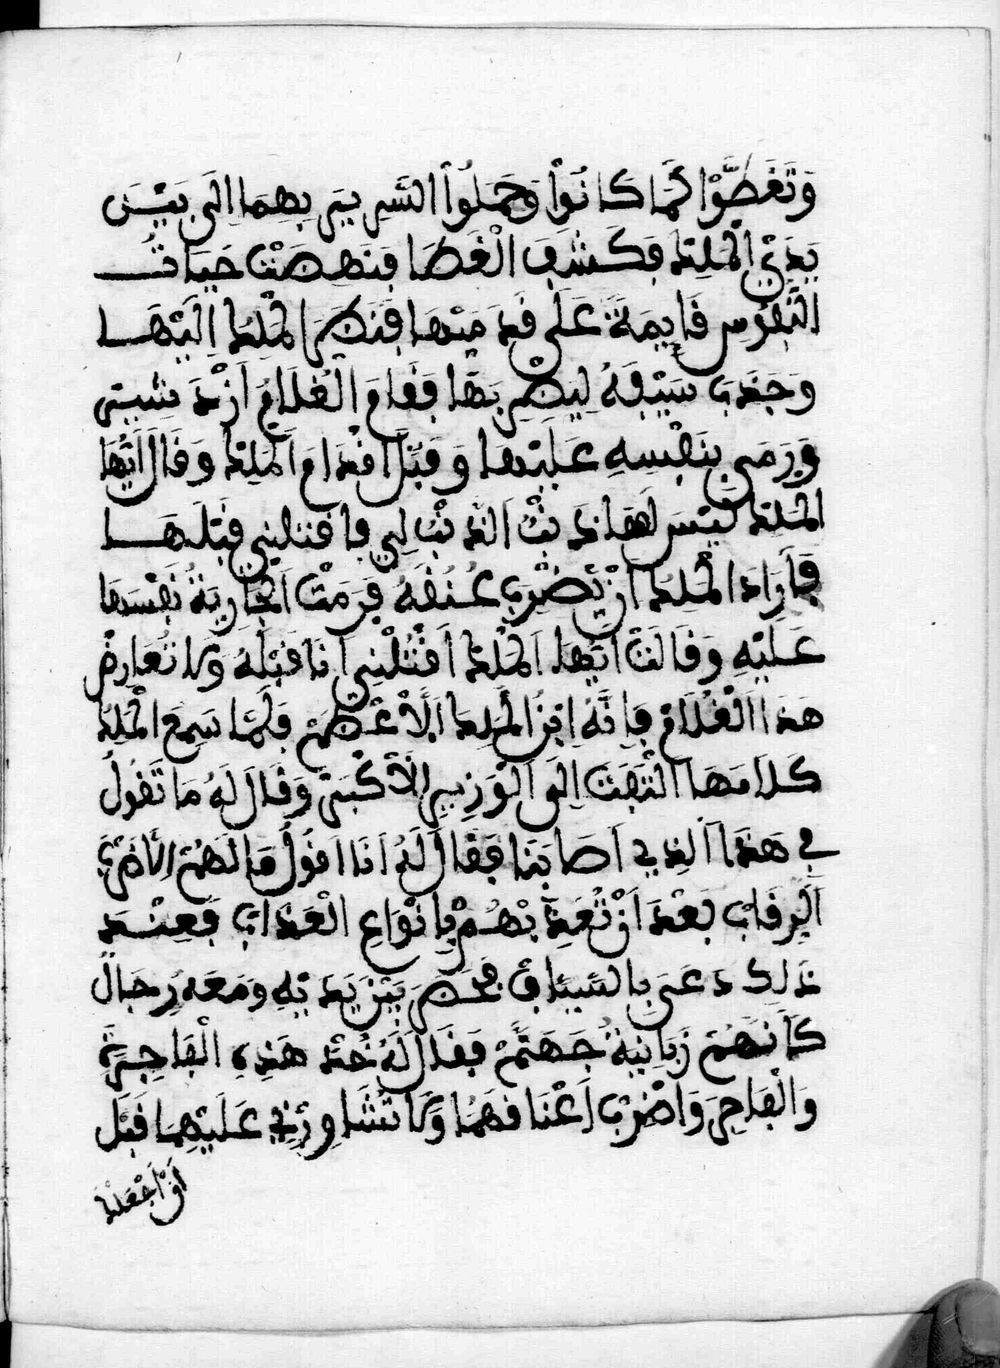 وَتَغَطَّوْا كَمَا كَانُوا وَحَمَلُوا السَّرِيرَ بِهِمَا إِلَى بَيْنَ
يَدَيْ الْمَلِكِ فَكَشَفَ الْغَطَا فَنَهَضَتْ حَيَاتُ
النُّفُوسِ قَايِمَةً عَلَى قَدَمَيْهَا فَنَظَرَ الْمَلِكُ إِلَيْهَا
وَجَذَبَ سَيْفَهُ لِيَضْرِبَهَا فَقَامَ الْغُلَامُ أَزْدَشِير
وَرَمَى بِنَفْسِهِ عَلَيْهَا وَقَبَّلَ اقْدَامَ الْمَلِكِ وَقَالَ أَيُّهَا
الْمَلِكُ لَيْسَ لَهَا ذَنْبٌ الذَنْبُ لِي فَاقْتُلْنِي قَبْلَهَا
فَأَرَادَ الْمَلِكُ أَنْ يَضْرِبَ عُنُقَهُ فَرَمَتْ الْجَارِيَةُ نَفْسَهَا
عَلَيْهِ وَقَالَتْ أَيُّهَا الْمَلِكُ اقْتُلْنِي أَنَا قَبْلَهُ وَلَا تُعَارِضْ
هَذَا الْغُلَامَ فَإِنَّهُ ابْنُ الْمَلِكِ الْأَعْظَمِ فَلَمَّا سَمِعَ الْمَلِكُ
كَلَامَهَا الْتَفَتَ إِلَى الْوَزِيرِ الْأَكْبَرِ وَقَالَ لَهُ مَا تَقُولُ
فِي هَذَا الَّذِي أَصَابَنَا فَقَالَ لَهُ أَنَا أَقُولُ مَا لَهُمْ إِلَّا ضَرْبَ
الرِقَابِ بَعْدَ أَنْ تُعَذِّبَهُمْ بِأَنْوَاعِ الْعَذَابِ فَعِنْدَ
ذَلِكَ دَعَى بِالسَّيَّافِ فَحَضَرَ بَيْنَ يَدَيْهِ وَمَعَهُ رِجَالٌ
كَأَنَّهُمْ زَبَانِيَةُ جَهَنَّمْ فَقَالَ لَهُ خُذْ هَذِهِ الْفَاجِرَةَ
وَالْفَاجِرَ وَاضْرِبْ أَعْنَاقَهُمَا وَلَا تُشَاوِرْنِي عَلَيْهِمَا قَبْلَ